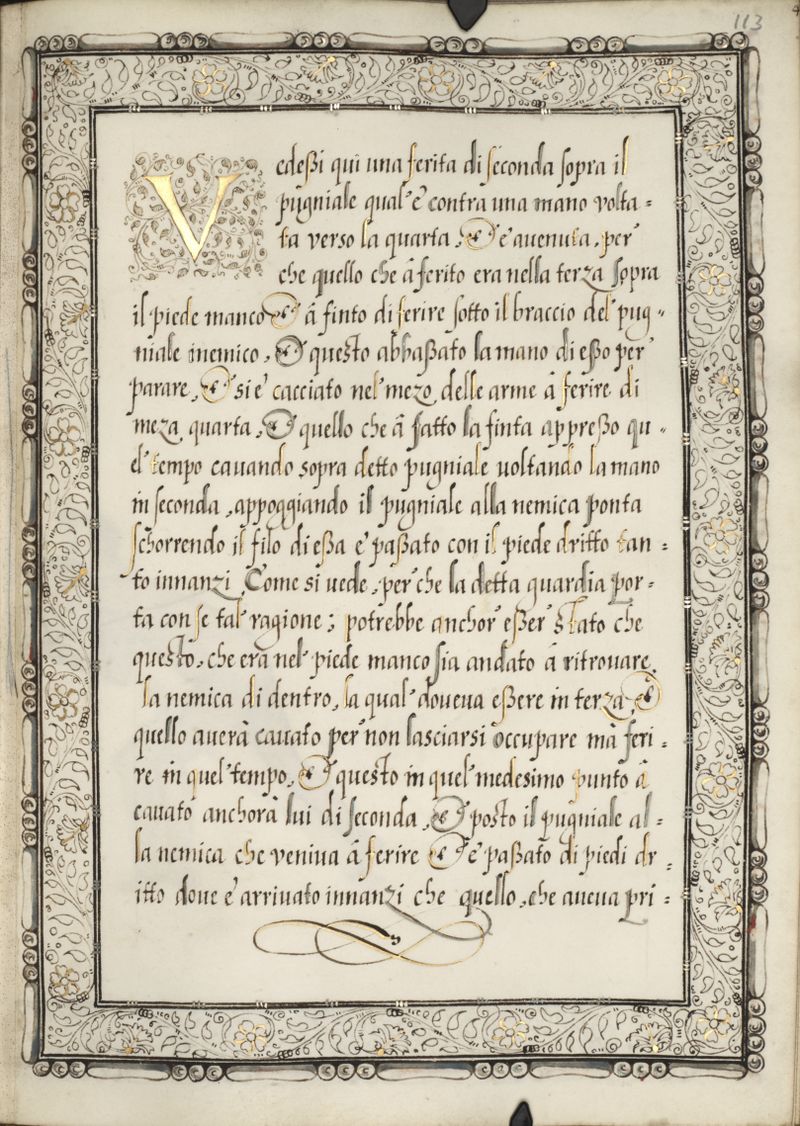 113
Vedeßi qui una ferita di seconda sopra il
pugniale qual' e' contra una mano volta =
ta verso la quarta, & e' avenuta, per
che quello che à ferito era nella terza sopra
il piede manco & à finto di ferire sotto il braccio del pug =
niale inemico, & questo abbaßato la mano di eßo per
parare, & si e' cacciato nel mezo, delle arme à ferire di
meza, quarta, & quello che à fatto la finta appreßo qu =
el tempo cavando sopra detto pugniale voltando la mano
in seconda, appoggiando il pugniale alla nemica ponta
schorrendo il filo di eßa e' paßato con il piede dritto tan =
to innanzi, Come si vede, per che la detta guardia por =
ta con se tal' ragione; potrebbe anchor' eßer' stato che
questo, che era nel' piede manco sia andato à ritrovare,
la nemica di dentro, la qual' doveva eßere in terza, &
quello averà cavato per' non lasciarsi occupare mà feri =
re in quel' tempo, & questo in quel' medesimo punto à
cavato anchorà lui di seconda, & posto il pugniale al =
la nemica che veniva à ferire & e' paßato di piedi dr =
itto dove e' arrivato innanzi che quello, che aveva pri =